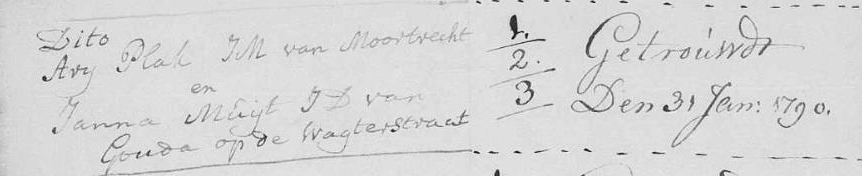 Dito
Ary Plak JM van Moortrecht
en
Janna Muijt JD van
Gouda op de Wagterstraat
1.
2.
3
Getrouwdt
Den 31 Jan: 1790.